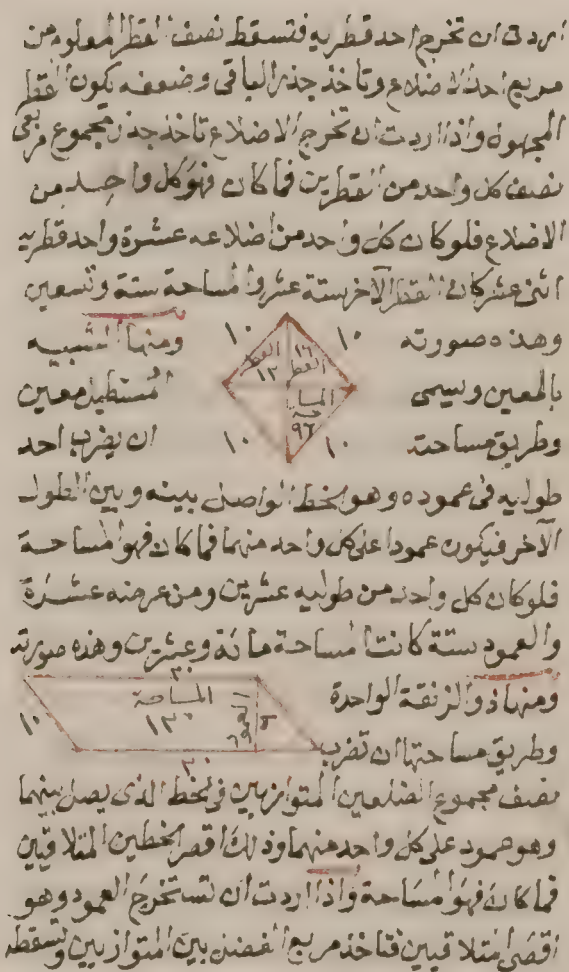 اردت ان تخرج احد قطريه فتسقط نصف القطر المعلوم من
مربع احد الاضلاع وتاخذ جذر الباقي وضعفه يكون القطر
المجهول واذا اردت ان تخرج الاضلاع تاخذ جذر مجموع مربعي
نصف كل واحد من القطرين فما كان فهو كل واحد من
الاضلاع فلو كان كل واحد من اضلاعه عشرة واحد قطريه
اثنى عشر كان القطر الآخر ستة عشر والمساحة ستة وتسعين
وهذه صورته
١٠ ١٠
القطر ١٦
القطر ١٢
المساحة ٩٦
١٠ ١٠
ومنها الشبيه
بالمعين ويسمى المستطيل معين
وطريق مساحته ان يضرب احد
طوليه في عموده وهو الخط الواصل بينه وبين الطول
الآخر فيكون عمودا على كل واحد منهما فما كان فهو المساحة
فلو كان كل واحد من طوليه عشرين ومن عرضه عشرة
والعمود ستة كانت المساحة مائة وعشرين وهذه صورته
٢٠
المساحة
١٢٠
العمود ٦
١٠
٢٠
ومنها ذو الزنقة الواحدة
وطريق مساحتها ان تضرب
نصف مجموع الضلعين المتوازيين في الخط الذى يصل بينهما
وهو عمود على كل واحد منهما وذلك اقصر الخطين المتلاقيين
فما كان فهو المساحة واذا اردت ان تستخرج العمود وهو
اقصر المتلاقيين فتاخذ مربع الفضل بين المتوازيين وتسقطه